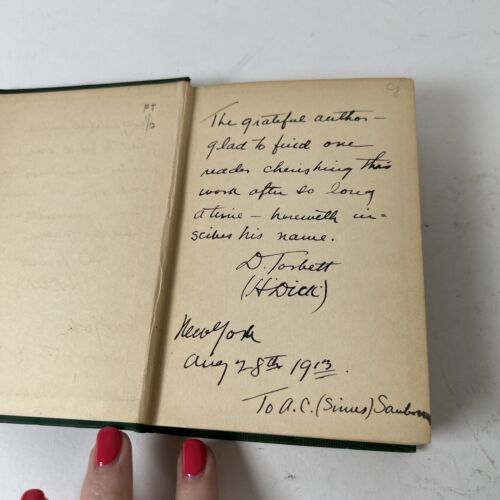 PT
1/12
Cf
The grateful author—
glad to find one
reader cherishing this
work after so long
a time — herewith in=
scribes his name.
D. Torbett
(H. Dick)
New York
Aug 28th 1913.
To A.C. (Simes) Sanborn